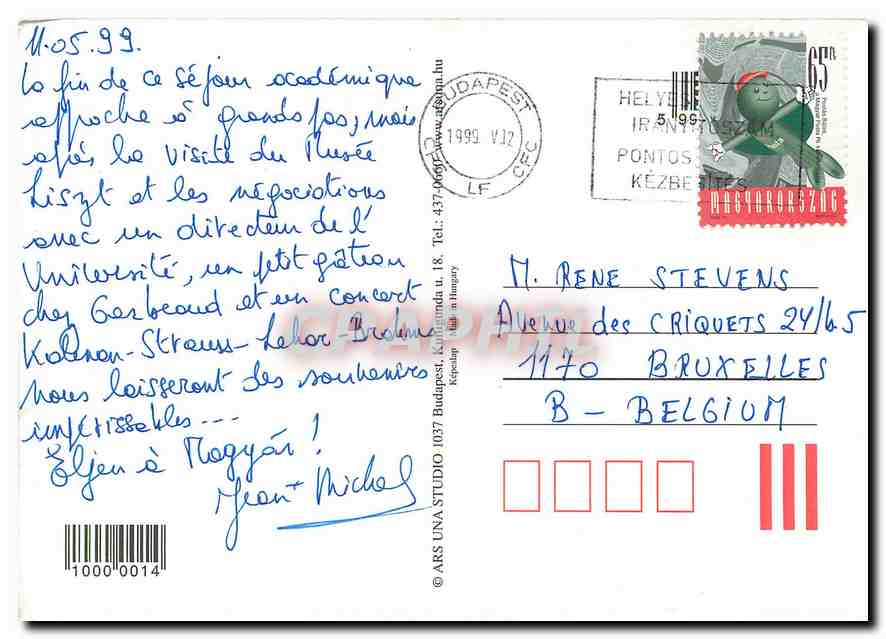 11.05.99.
La fin de ce séjour académique
approche à grands pas; mais
après la visite du Musée
Liszt et les négociations
avec un directeur de l'
Université, un petit gâteau
chez Gerbeaud et un concert
Kalman-Strauss-Lehar-Brahms
nous laisseront des souvenirs
impérissables...
Éljen à Magyár!
Jean Michel
1000 0014
© ARS UNA STUDIO 1037 Budapest, Kunigunda u. 18. Tel.: 437-0660 www.arsuna.hu
Képeslap Made in Hungary
BUDAPEST
1999 V.12
CFC CFC
LF
HELYES
IRÁNYÍTÓSZÁM
PONTOS
KÉZBESÍTÉS
5 99
65Ft
MAGYARORSZÁG
M. RENE STEVENS
Avenue des CRIQUETS 24/b5
1170 BRUXELLES
B - BELGIUM
CPAPHIL